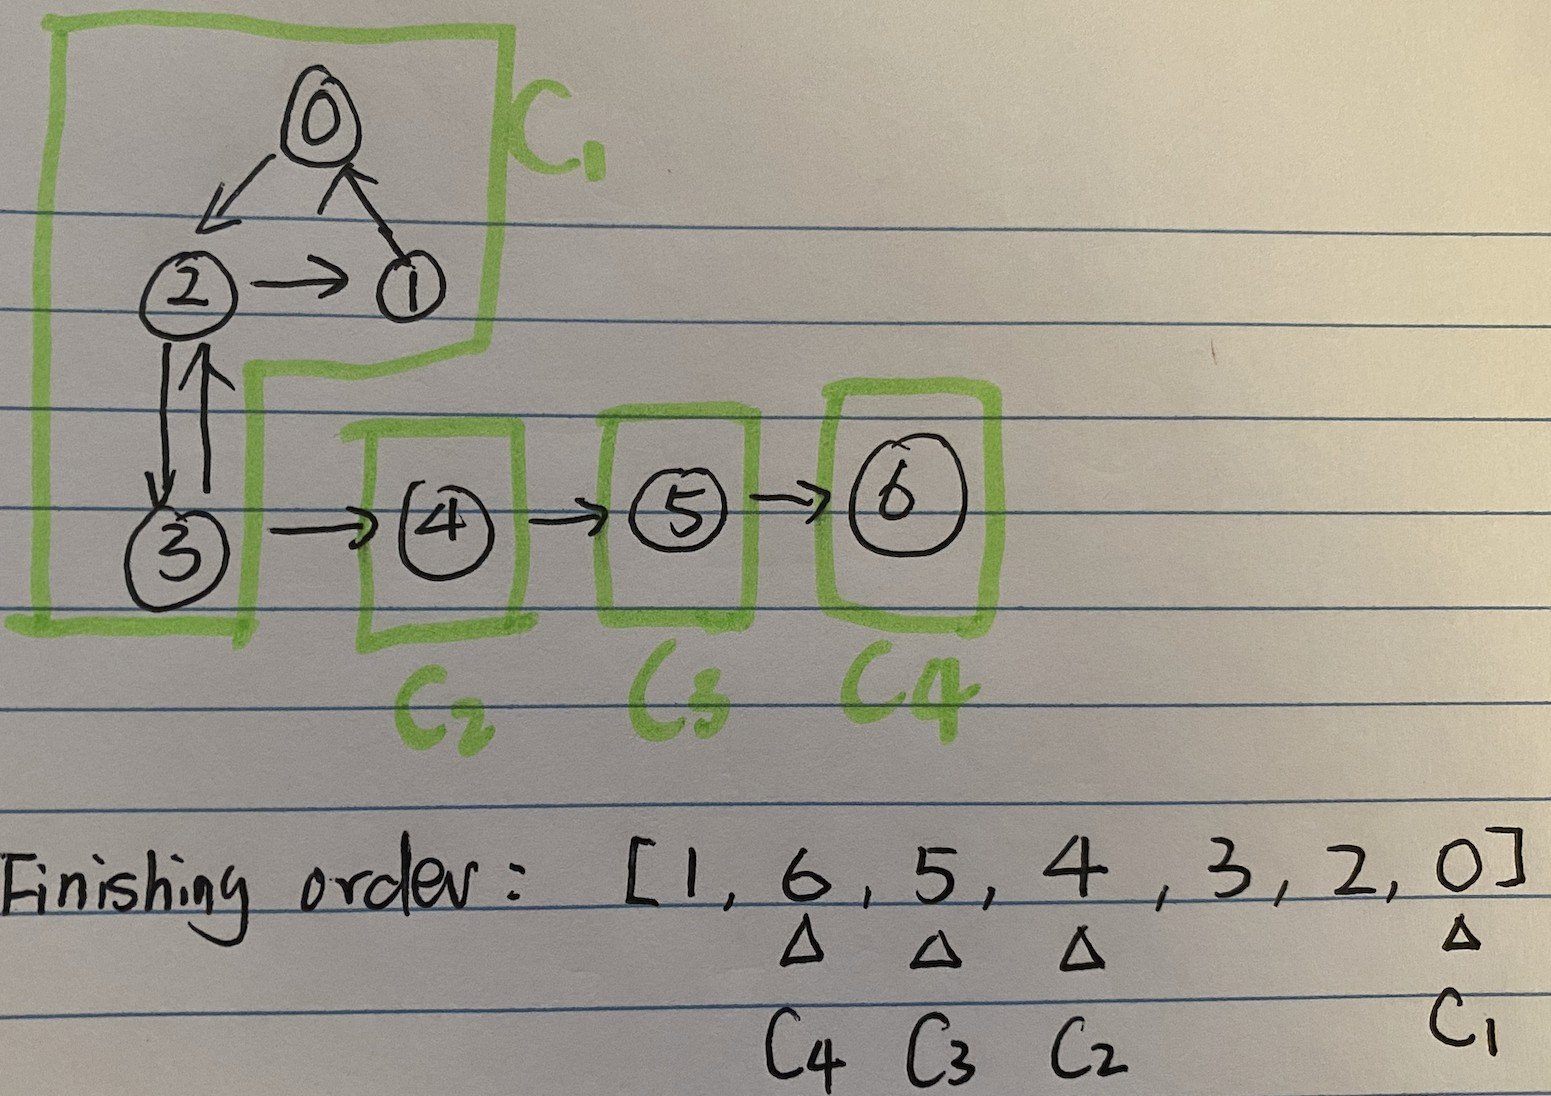 0
C₁
2 1
3 4 5 6
C₂ C₃ C₄
Finishing order: [1, 6, 5, 4, 3, 2, 0]
Δ Δ Δ Δ
C₄ C₃ C₂ C₁